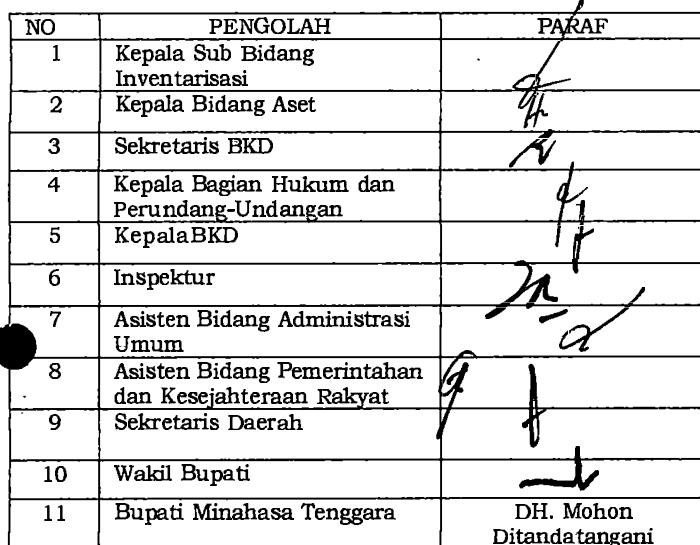 NO PENGOLAH PARAF
1 Kepala Sub Bidang
Inventarisasi
2 Kepala Bidang Aset
3 Sekretaris BKD
4 Kepala Bagian Hukum dan
Perundang-Undangan
5 KepalaBKD
6 Inspektur
7 Asisten Bidang Administrasi
Umum
8 Asisten Bidang Pemerintahan
dan Kesejahteraan Rakyat
9 Sekretaris Daerah
10 Wakil Bupati
11 Bupati Minahasa Tenggara DH. Mohon
Ditandatangani